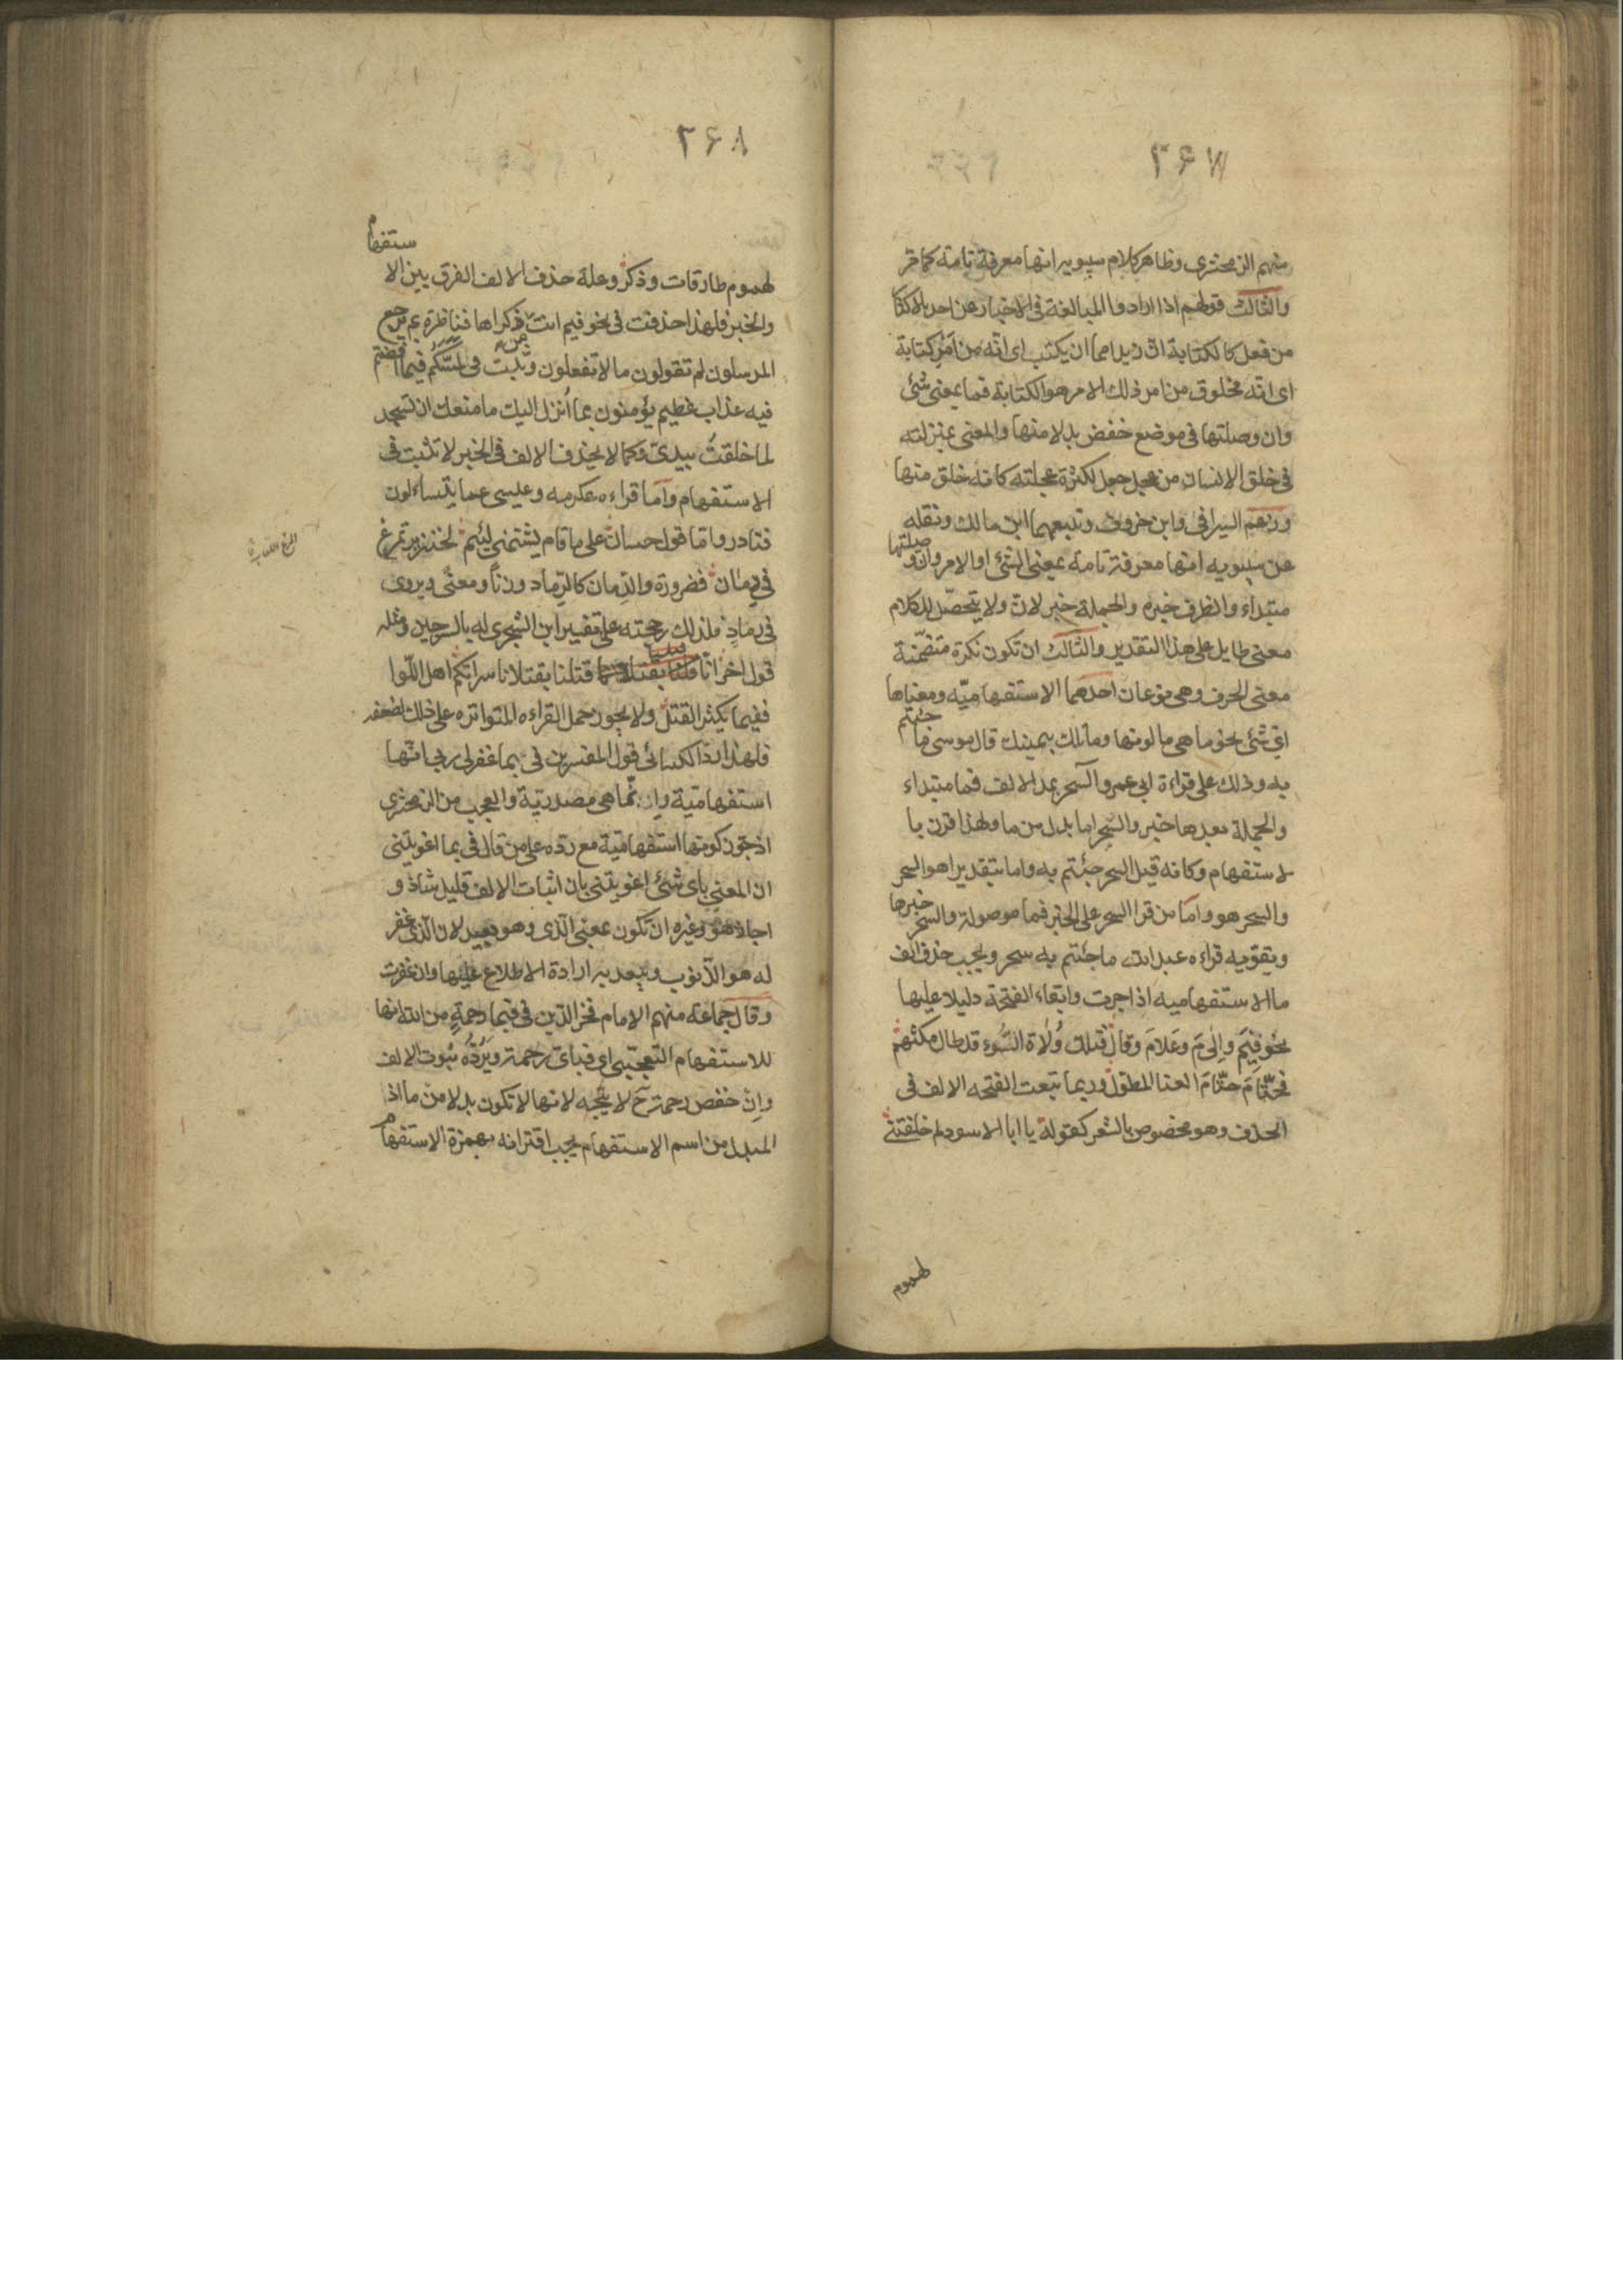 ۳۶۷
منهم الزمخشري وظاهر كلام سيبويه انها معرفة تامة كما مر
والثالث قولهم اذا ارادوا المبالغة في الاخبار عن احد بالاكثار
من فعل كالكتابة ان زيدا مما ان يكتب اى انّه من اَمرِ كتابة
اى انّه مخلوق من امر ذلك الامر هو الكتابة فما بمعنى شئ
وان وصلتها في موضع خفض بدلا منها والمعنى بمنزلته
في خلق الانسان من عجل جعل لكثرة عجلته كانه خلق منها
وزعم السيرافى وابن خروف وتبعهما ابن مالك ونقله
عن سيبويه انها معرفة تامة بمعنى الشئ او الامر وان وصلتها
مبتداء والظرف خبره والجملة خبر لان ولا يتحصّل للكلام
معنى طايل على هذا التقدير والثالث ان تكون نكرة متضمّنة
معنى الحرف وهى نوعان احدهما الاستفهاميّه ومعناها
اىّ شئ نحو ما هى ما لونها وما تلك بيمينك قال موسى ما جئتم
به وذلك على قراءة ابى عمرو آلسحر بمد الالف فما مبتداء
والجملة بعدها خبر والسّحر اما بدل من ما ولهذا قرن با
لاستفهام وكانه قيل السحر جئتم به واما بتقدير اهو السحر
والسحر هو واما من قرا السحر على الخبر فما موصولة والسحر خبرها
ويقوّيه قراءه عبد الله ما جئتم به سحر ويجب حذف الف
ما الاستفهاميه اذا جرت وابقاء الفتحة دليلا عليها
نحو فِيَم وإلىَ مَ وعَلامَ وقال فتلك وُلاة السُّوء قد طال مكثهم
فحتّامَ حتّامَ العنا المطوّل وربما تبعت الفتحه الالف فى
الحذف وهو مخصوص بالشعر كقوله يا ابا الاسود لم خلفتنى
لهموم
۳۶۸
لهموم طارقات وذكر وعلة حذف الالف الفرق بين الا ستفهام
والخبر فلهذا حذفت في نحو فيم انت من ذكراها فناظرة بم يرجع
المرسلون لم تقولون ما لا تفعلون وثبتت فى لمسّكم فيما افضتم
فيه عذاب عظيم يؤمنون بما اُنزل اليك ما منعك ان تسجد
لما خلقتُ بيدىّ وكما لا يحذف الالف فى الخبر لا تثبت فى
الاستفهام وامّا قراءه عكرمه وعيسى عما يتساءلون
فنادر واما قول حسان على ما قام يشتمنى لئيم كخنزير تمرغ
في دمان فضرورة والدِمان كالرّماد وزناً ومعنًى ويروى
فى رمادٍ فلذلك رجحته على تفسير ابن الشجرى له بالسرجين ومثله
قول اخر انّا قتلنا بقتلانا سراتكم اهل اللّوا
ففيما يكثر القتل ولا يجوز حمل القراءه المتواتره على ذلك لضعفه
فلهذا ردّ الكسائى قول المفسرين فى بما غفر لى ربى انّها
استفهاميّة وانّما هى مصدريّة والعجب من الزمخشري
اذ جوّز كونها استفهاميّة مع ردّه على من قال في بما اغويتنى
ان المعنى باى شئ اغويتنى بان اثبات الالف قليل شاذ و
اجاز هو وغيره ان تكون بمعنى الّذى وهو بعيد لان الّذى غفر
له هو الذّنوب ويبعد به ارادة الاطلاع عليها وان غفرت
وقال جماعة منهم الامام فخر الدّين فى فبما رحمةٍ من الله انها
للاستفهام التعجّبى اى فباىّ رحمة ويَرُدُّه ثبوت الالف
وانّ خفض رحمة ح لا يتّجه لانها لا تكون بدلا من ما اذ
المبدل من اسم الاستفهام يجب اقترانه بهمزة الاستفهام